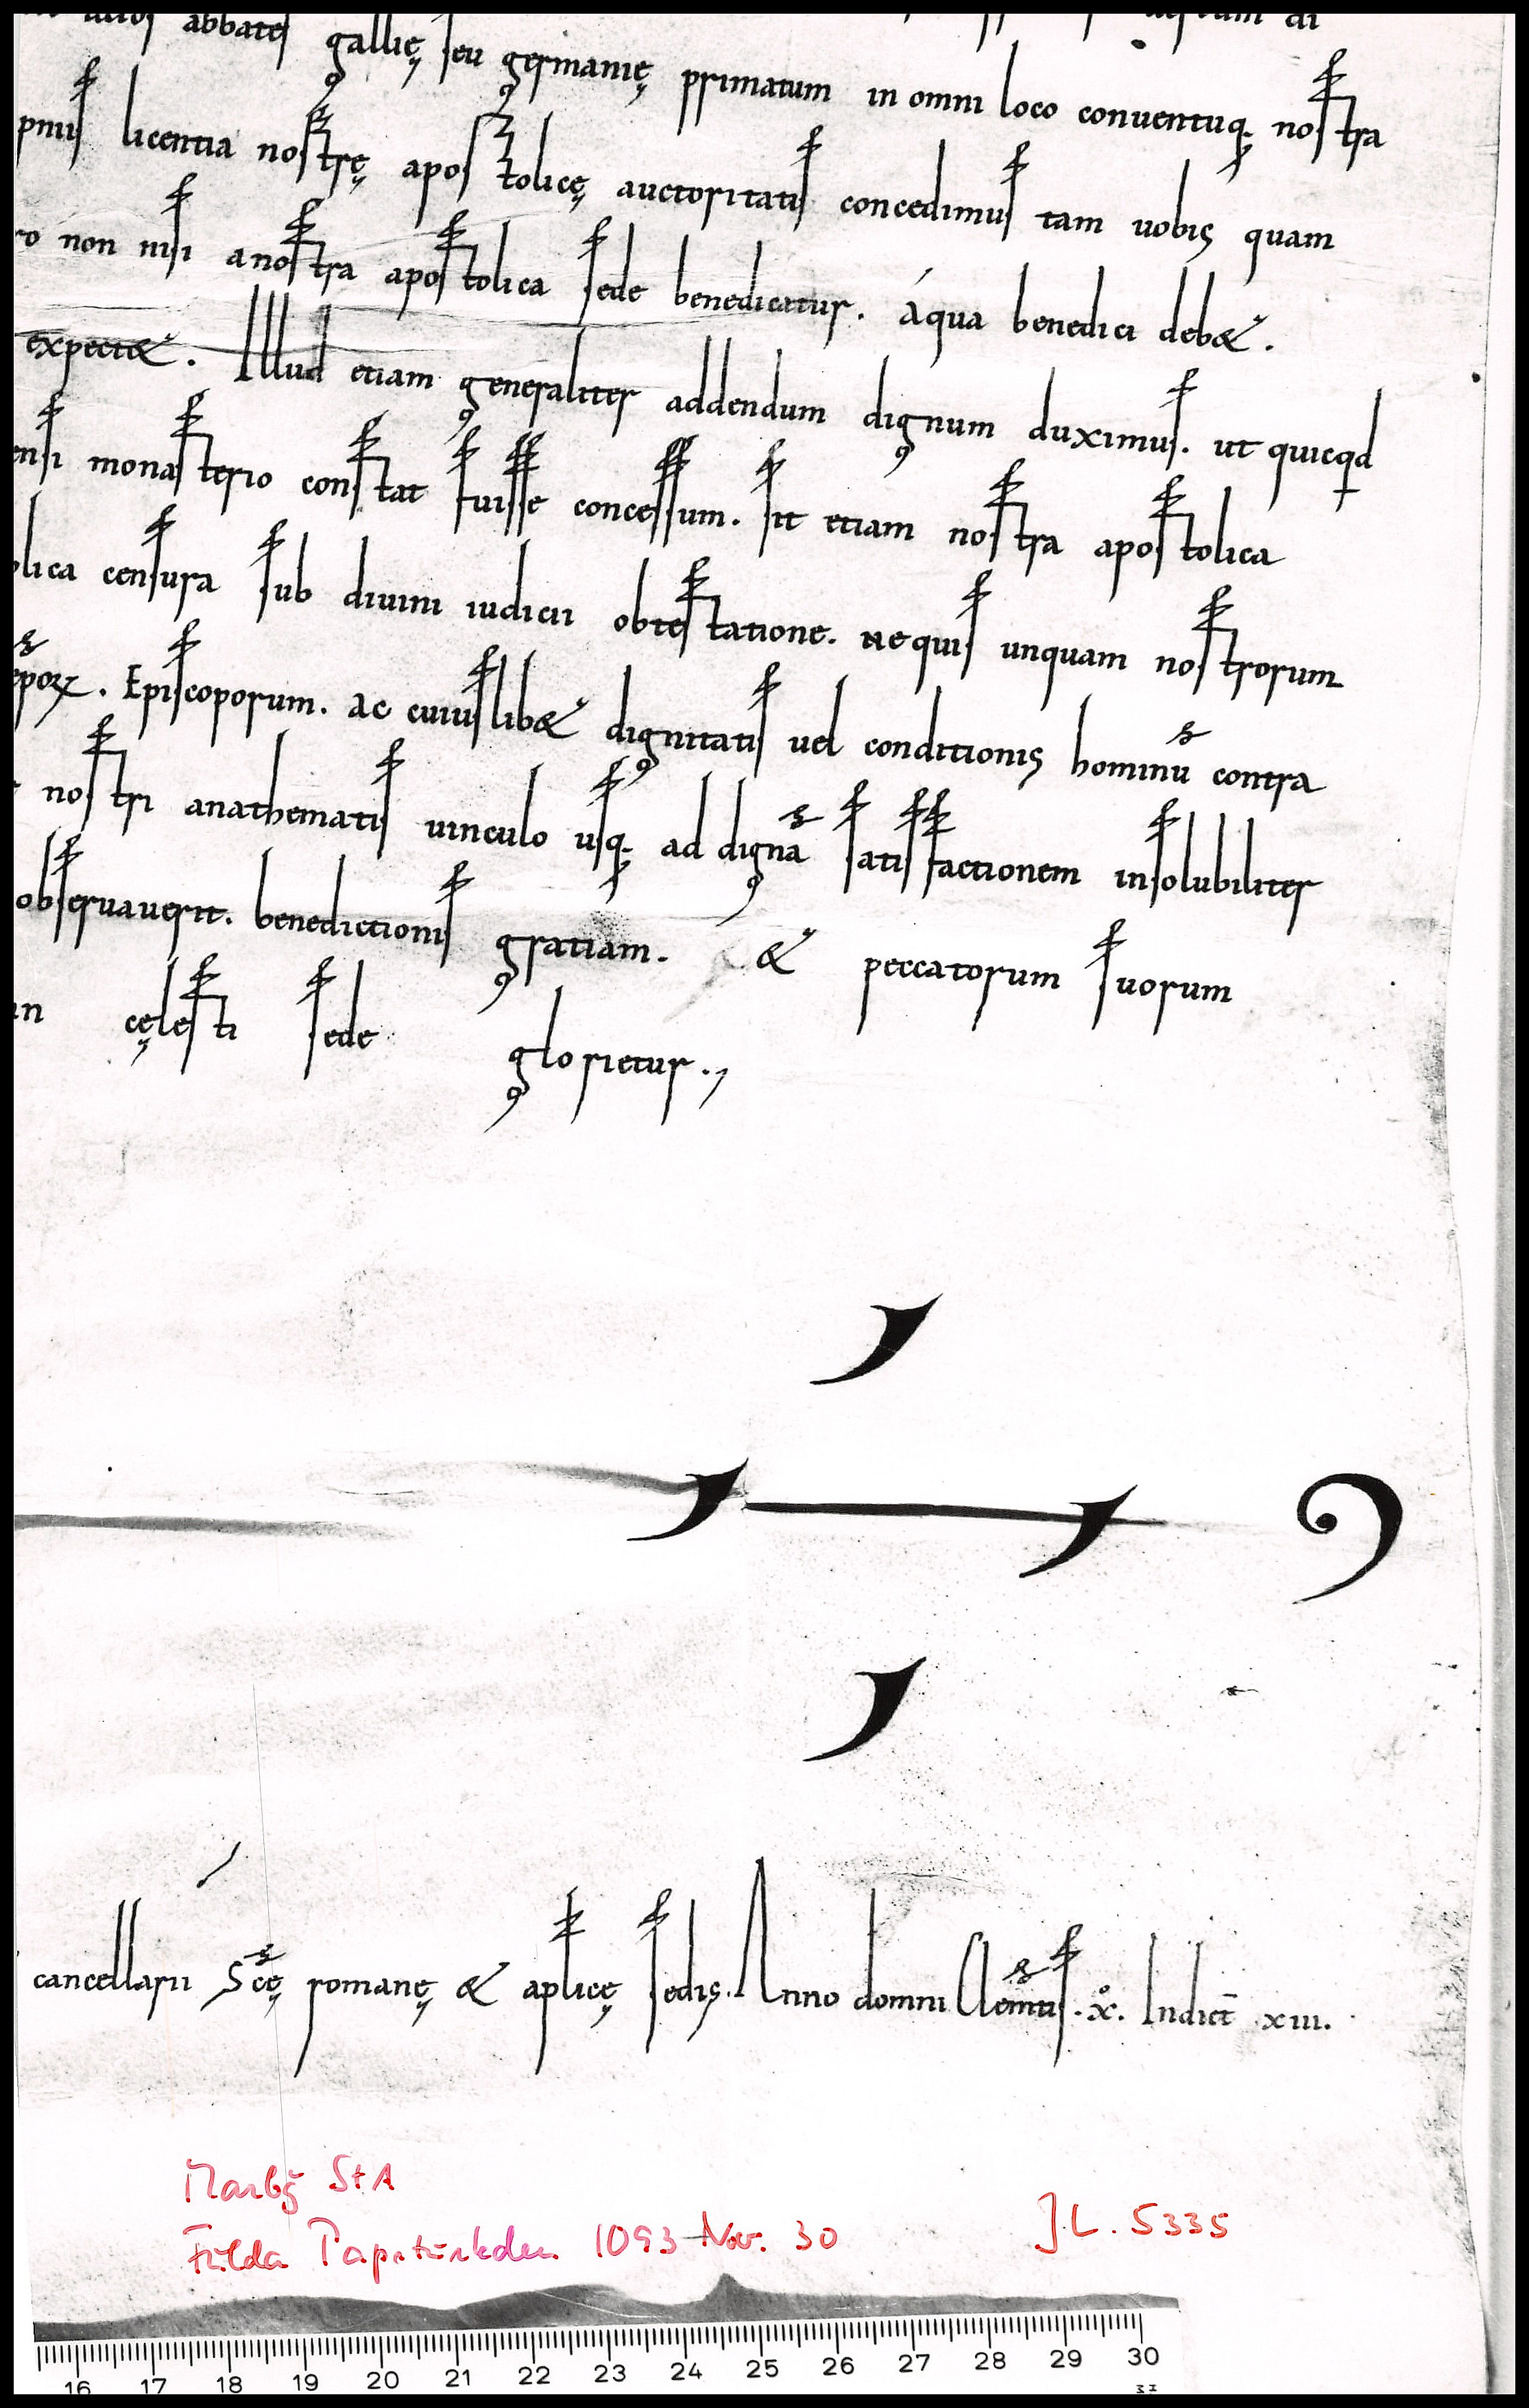 abbates
gallię seu germanię primatum in omni loco conuentuq; nostra
licentia nostrę apostolicę auctoritatis concedimus tam uobis quam
ro non nisi a nostra apostolica sede benedicatur. áqua benedici deb&.
expeti&. Illud etiam generaliter addendum dignum duximus. ut quicqd
ensi monasterio constat fuisse concessum. sit etiam nostra apostolica
lica censura sub diuini iudicii obtestatione. ne quis unquam nostrorum
Episcoporum. ac cuiuslib& dignitatis uel conditionis hominū contra
nostri anathematis uinculo usq; ad dignā satisfactionem insolubiliter
obseruauerit. benedictionis gratiam. & peccatorum suorum
in cęlesti sede glorietur.,
cancellarii Scę romanę & aplicę sedis. Anno domni Clemtis. x. Indict xiii.
Marbg StA
Fulda Papsturkden 1093 Nov. 30
J.L. 5335
16 17 18 19 20 21 22 23 24 25 26 27 28 29 30